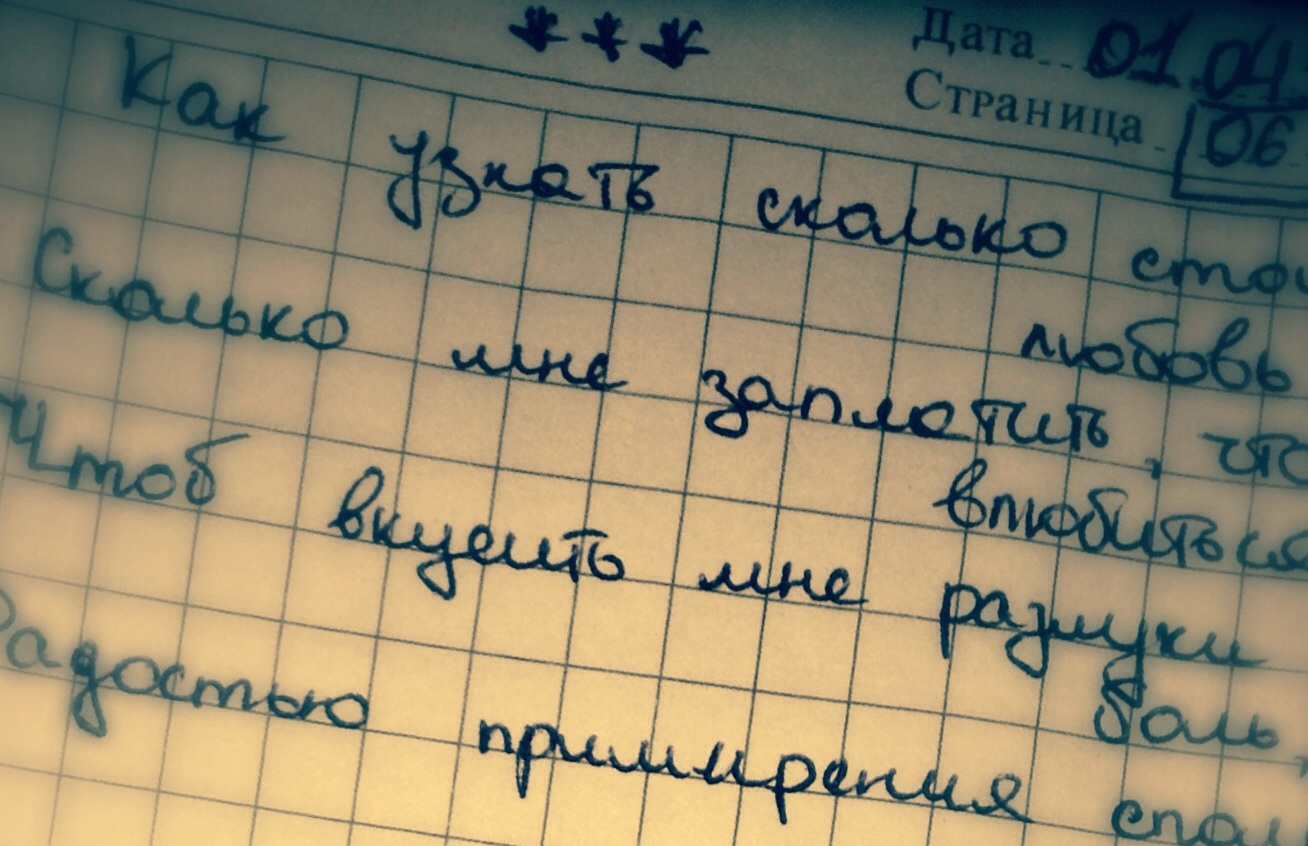 ***
Дата 01.04.
Страница 06
Как узнать сколько
любовь
Сколько мне заплатить,
влюбиться
Чтоб вкусить мне разлуки
боль,
Радостью примирения